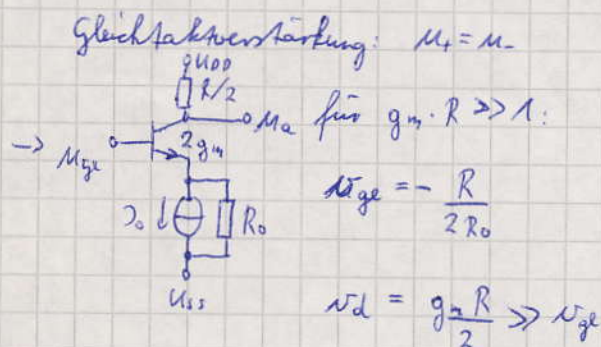 Gleichtaktverstärkung: u₊ = u₋
U_DD
R/2
u_a für g_m · R >> 1:
→ u_gl 2g_m
v_gl = - R / (2 R_0)
I_0 ↓ R_0
U_SS
v_d = g_m R / 2 >> v_gl